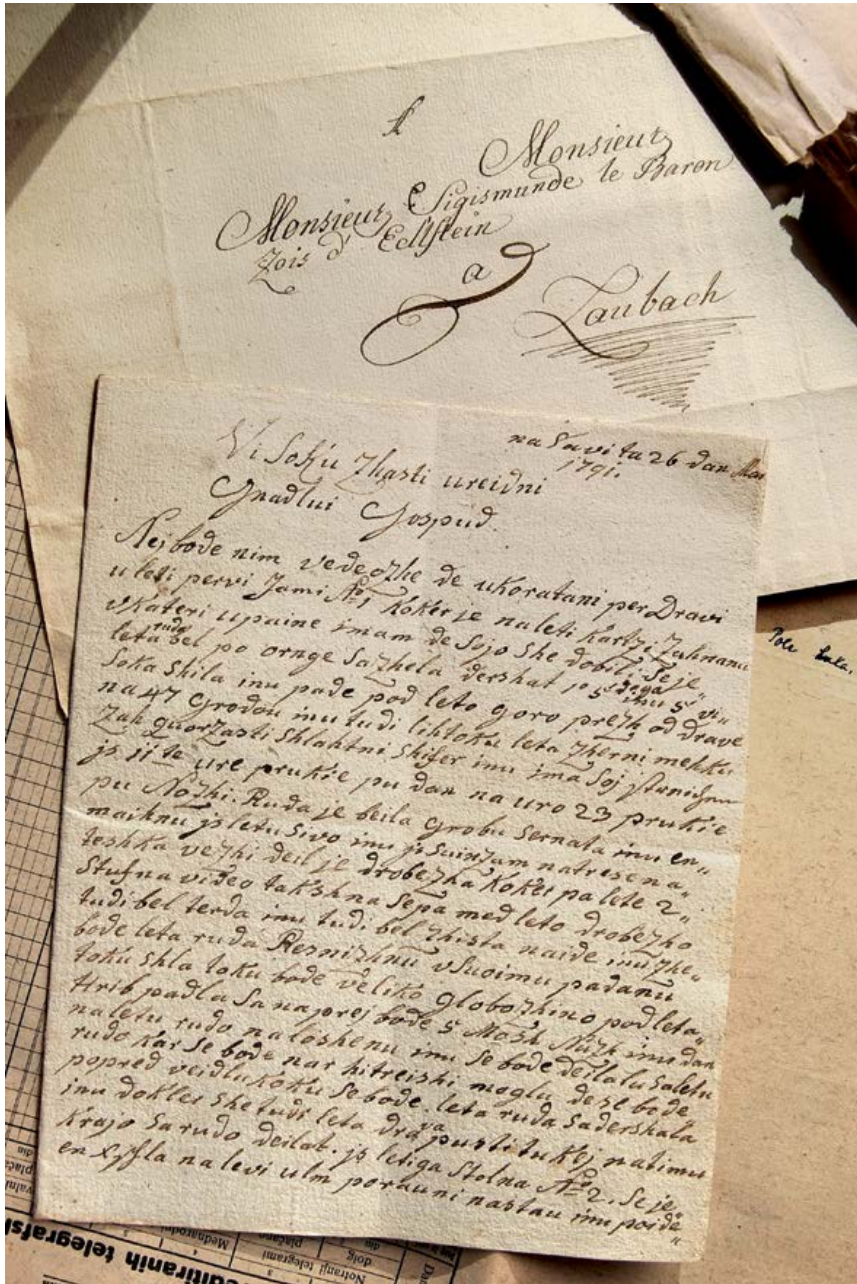 A
Monsieur
Monsieur Sigismunde le Baron
Zois d' Edlstein
a
Laubach
na Savi ta 26 dan Mar
1791.
Visoku Zhasti ureidni
Gnadlui Gospud.
Nej bode nim vedeozhe de ukoratani per Dravi
u leti pervi Jami No 1 koker je na leti kartzi Zahnanu
v kateri upaine imam de so jo she dobili. Se je
leta ruda bel po ornge sazhela dershat
soka shila inu pade pod leto goro prezh od drave
na 47 Grodou inu tudi lihtoku leta zherni mehku
Zah quorzasti shlahtni shifer inu ima soj
js 11 te ure prukie pu dan na uro 23 prukie
pu Nozhi. Ruda je beila grobu sernata inu en„
maihnu js letu sivo inu js natresena„
teshka vezhi deil je drobezhka koker pa lete 2„
Stufna video takshna sepa med leto drobezho
tudi bel terda inu tudi bel zhista naide inu zhe„
bode leta ruda Resnizhnu v suoimu padanu
toku shla toku bode veliko globozhino pod leta„
Hrib padla sa naprej bode 5 Mosh Nuzh inu dan
na letu rudo na loshenu inu se bode deilalu sa letu
rudo kar se bode nar hitreishi moglu, de se bode
popred veidlu koku se bode leta ruda sadershala
inu dokler she tudi leta drava pusti tukej na timu
krajo sa rudo deilat. js letiga Stolna No 2. Se je„
en na levi ulm porauni nastau inu poide„
Pole
Mednarodni
Notranji telegrami
din
dolg
editiranih telegrafsk